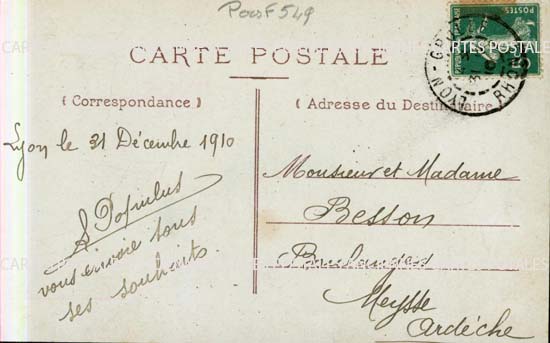 PoosF549
CARTE POSTALE
( Correspondance )
( Adresse du Destinataire )
LYON - GRE
31
RHONE
CARTES POSTALES
Lyon le 31 Décembre 1910
Populus
vous envoie tous
ses souhaits.
Monsieur et Madame
Besson
Boulanger
Meysse
Ardèche